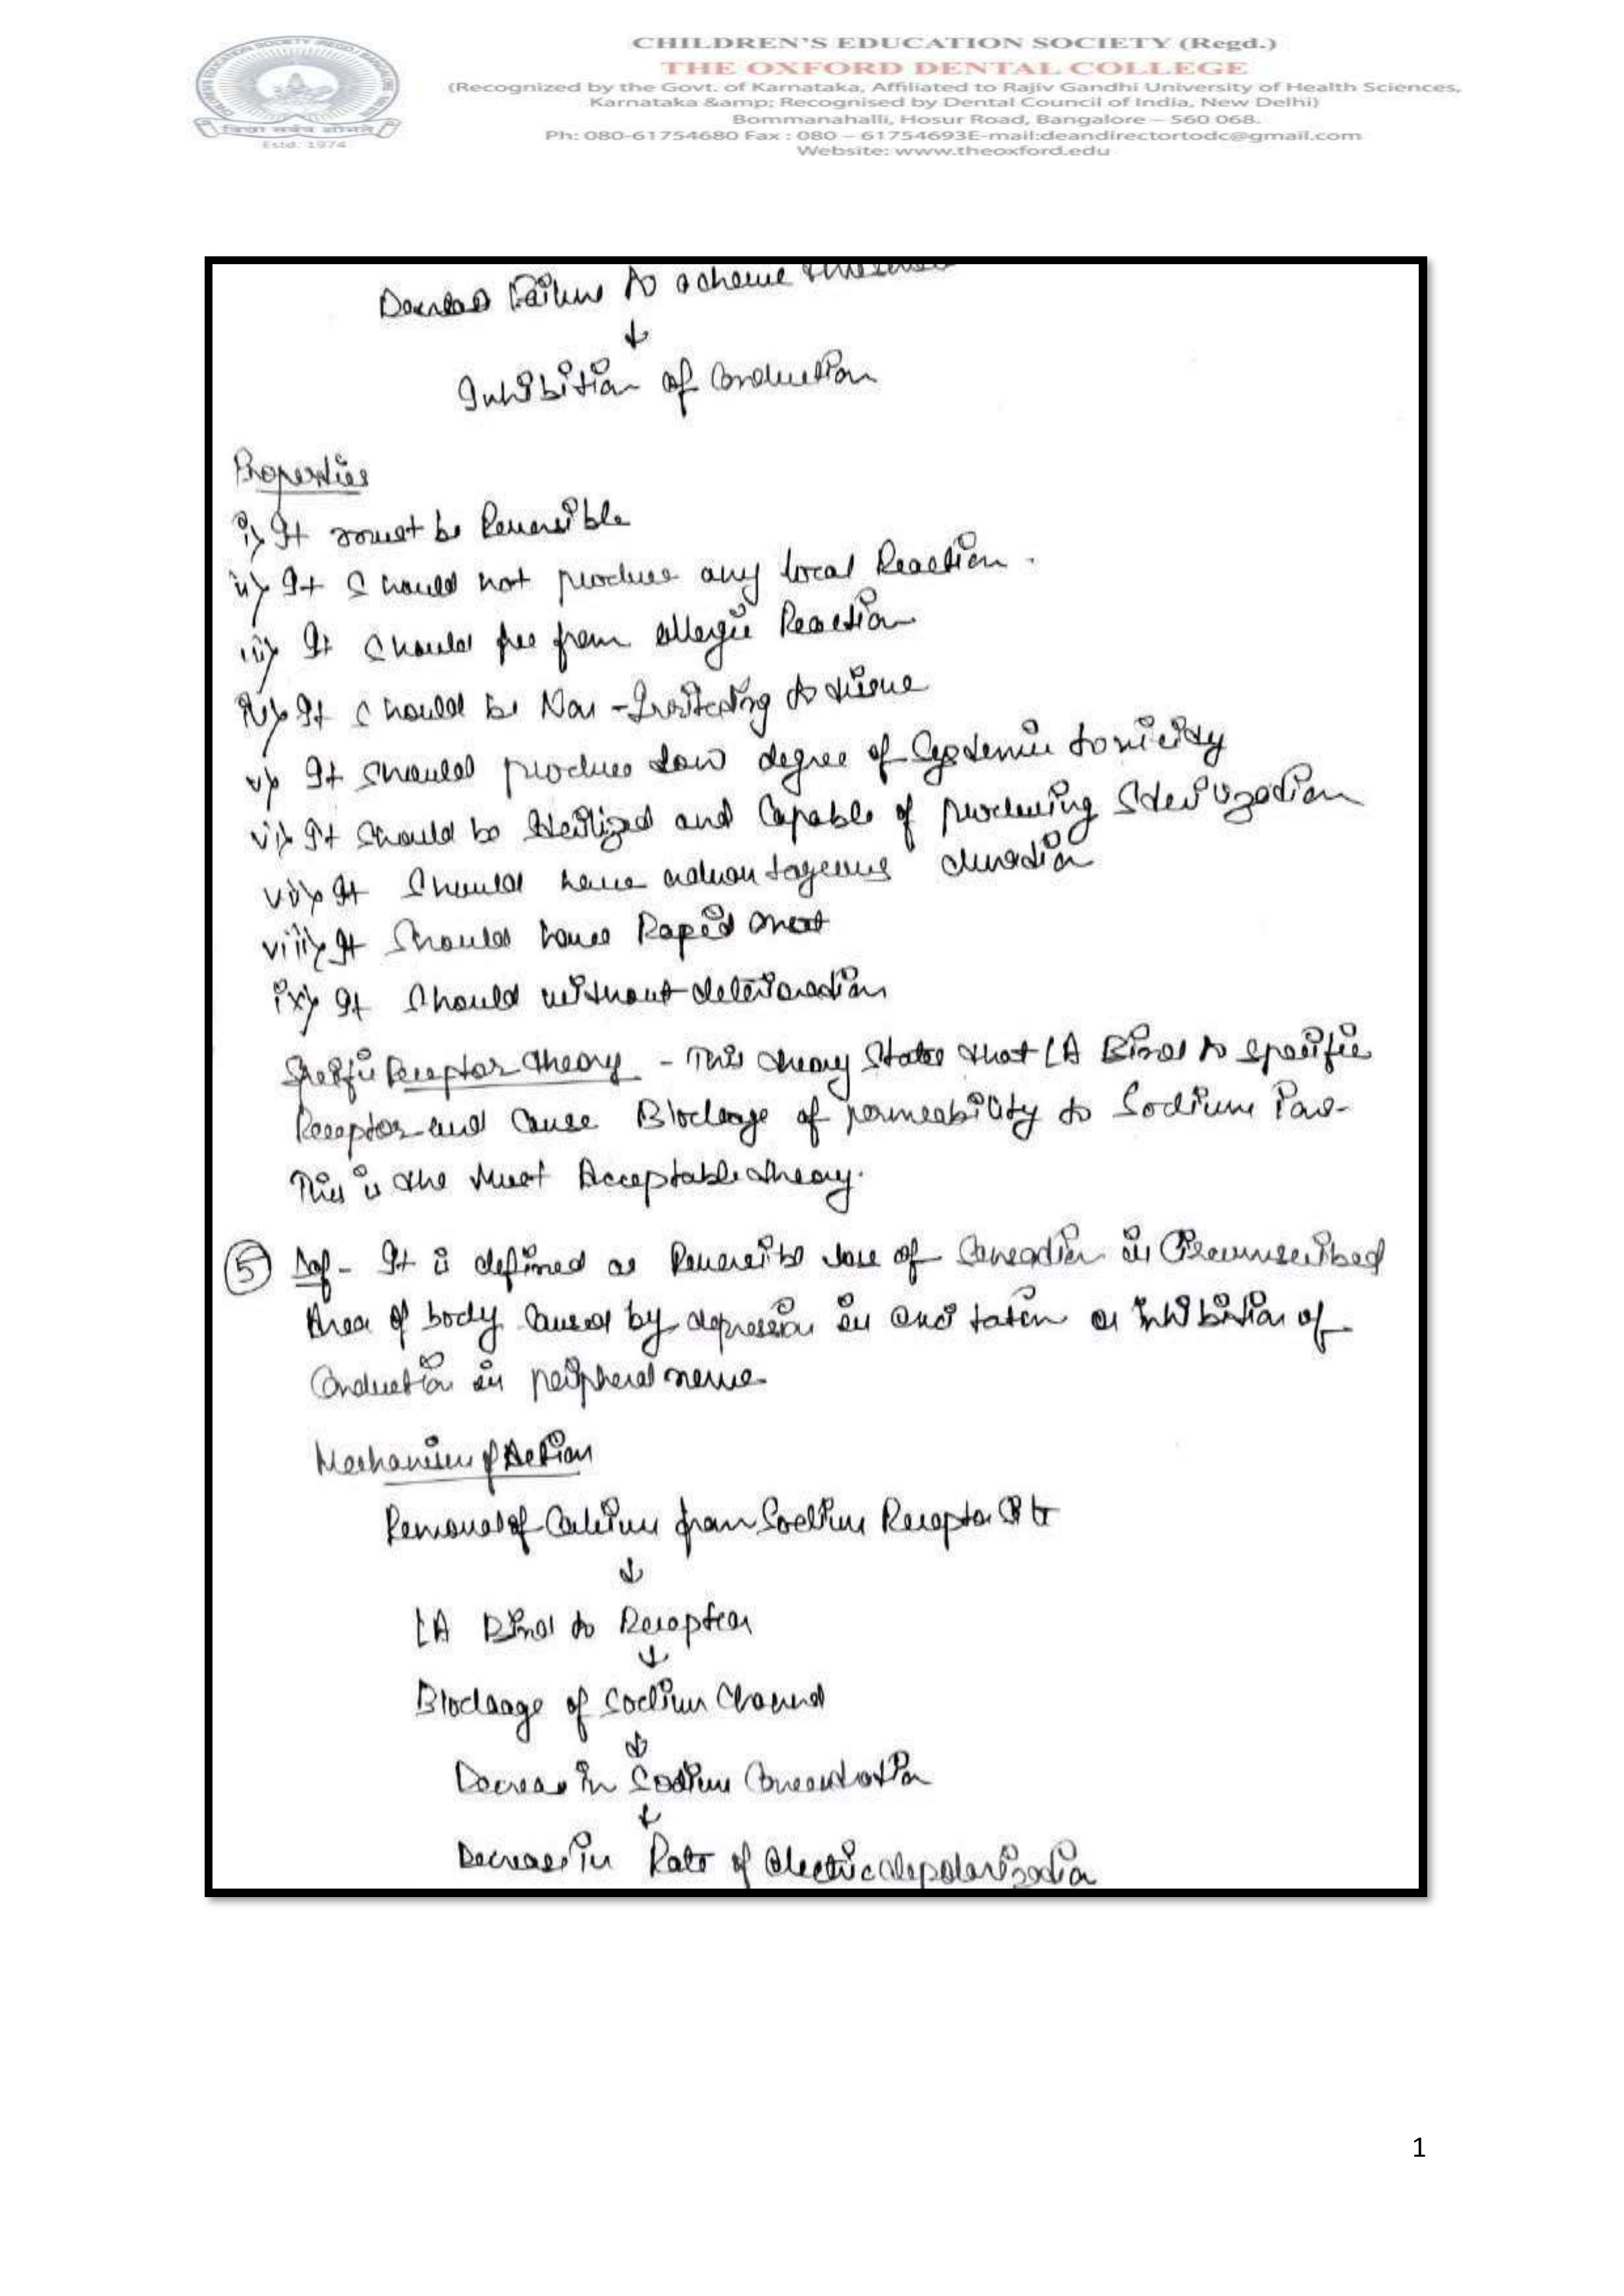 CHILDREN'S EDUCATION SOCIETY (Regd.)
THE OXFORD DENTAL COLLEGE
(Recognized by the Govt. of Karnataka, Affiliated to Rajiv Gandhi University of Health Sciences,
Karnataka &amp; Recognised by Dental Council of India, New Delhi)
Bommanahalli, Hosur Road, Bangalore – 560 068.
Ph: 080-61754680 Fax : 080 – 61754693E-mail:deandirectortodc@gmail.com
Website: www.theoxford.edu
Estd. 1974
Failure to
↓
Inhibition of Conduction
Properties
i) It must be Reversible
ii) It Should not produce any local Reaction.
iii) It Should free from allergic Reaction
iv) It should be Non-Irritating to tissue
v) It should produce low degree of Systemic toxicity
vi) It should be Sterilized and Capable of producing Sterilization
vii) It Should have advantageous duration
viii) It Should have Rapid onset
ix) It Should without deterioration
Receptor theory - This theory States that LA Bind to specific
Receptor and Cause Blockage of permeability to Sodium
This is the Most Acceptable theory.
5 Def - It is defined as loss of Sensation in Circumscribed
Area of body Caused by depression in or Inhibition of
Conduction in peripheral nerve
Mechanism of Action
Removal of Calcium from Sodium Receptor
↓
LA Bind to Receptor
↓
Blockage of Sodium Channel
↓
Decrease in Sodium
↓
Decrease in Rate of electric depolarization
1